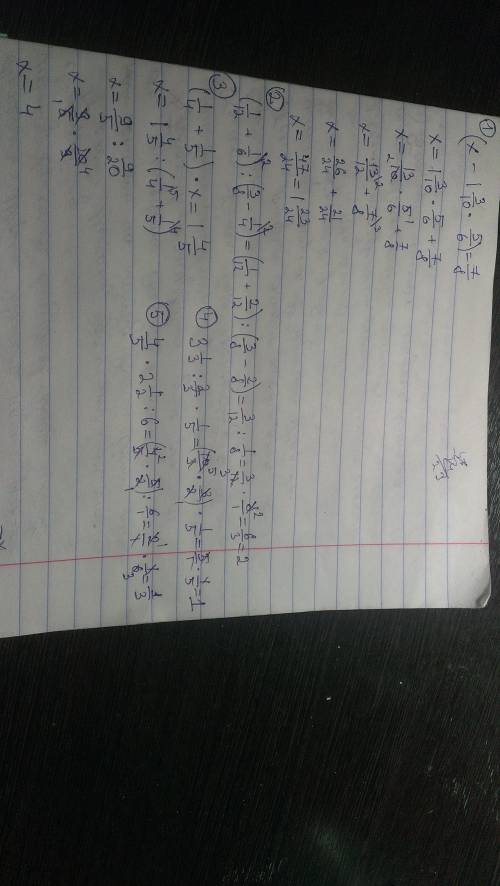 ① (x - 1 3/10 · 5/6) = 7/8
x = 1 3/10 · 5/6 + 7/8
x = 13/10 · 5/6 + 7/8
x = 13/12 + 7/8
x = 26/24 + 21/24
x = 47/24 = 1 23/24
② (1/12 + 1/6) : (3/8 - 1/4) = (1/12 + 2/12) : (3/8 - 2/8) = 3/12 : 1/8 = 3/12 · 8/1 = 6/3 = 2
③ (1/4 + 1/5) · x = 1 4/5
x = 1 4/5 : (1/4 + 1/5)
x = 9/5 : 9/20
x = 9/5 · 20/9
x = 4
④ 3 1/3 : 2/3 · 1/5 = (10/3 · 3/2) · 1/5 = 5/1 · 1/5 = 1
⑤ 4/5 · 2 1/2 : 6 = (4/5 · 5/2) : 6/1 = 2/1 · 1/6 = 1/3